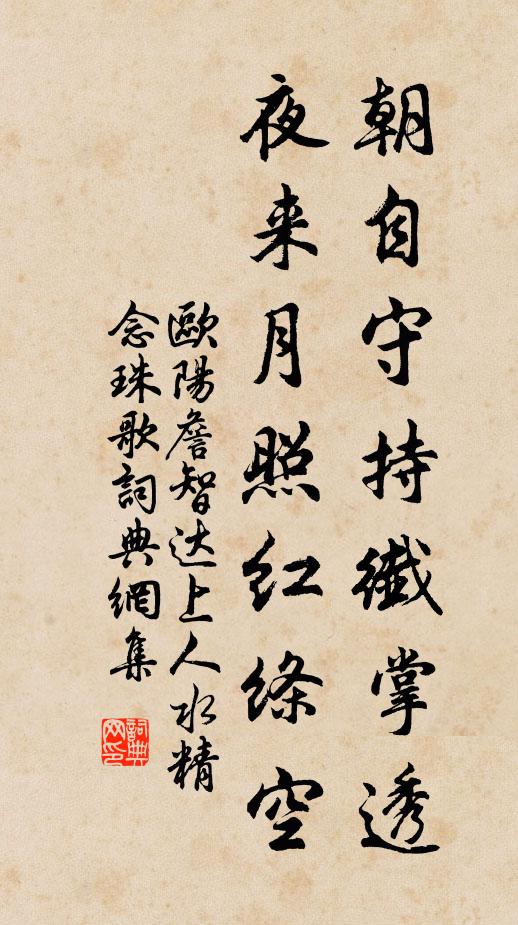 朝自守持纖掌透
夜来月照红絛空
歐陽詹智达上人水精
念珠歌詞典網集
詞典
网印